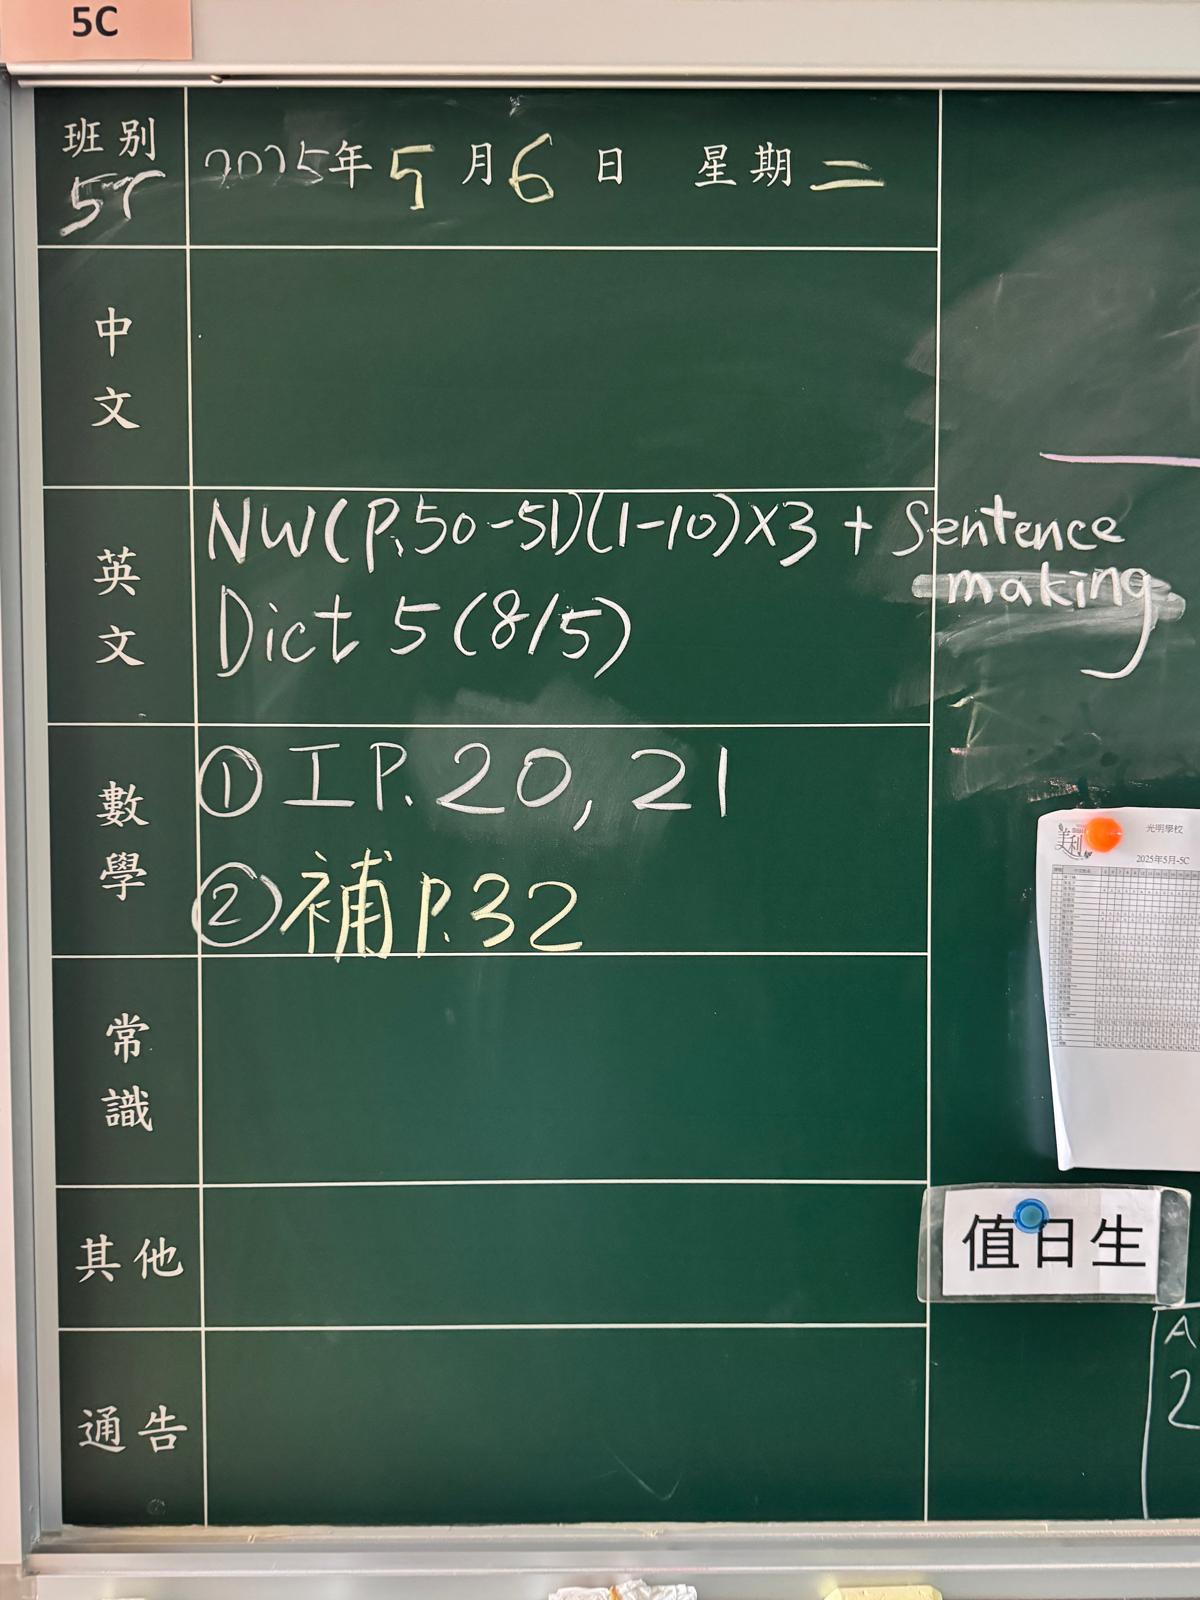 5C
班別
5C
2025年5月6日 星期二
中文
英文
NW(P.50-51)(1-10)x3 + Sentence
making
Dict 5 (8/5)
數學
① I P.20, 21
② 補 P.32
光明學校
2025年5月-5C
常識
其他
值日生
A
2
通告